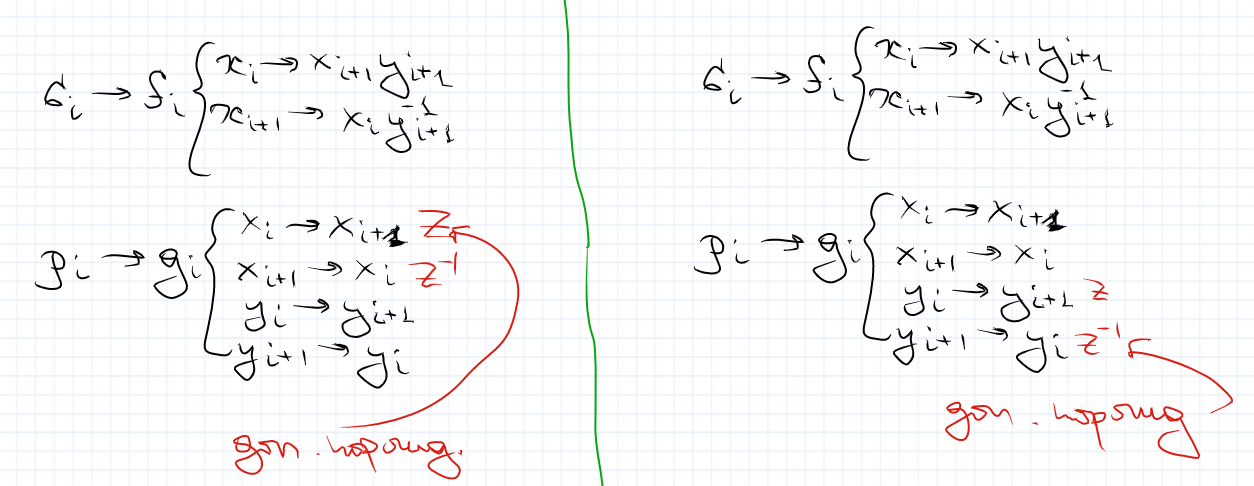 σᵢ → fᵢ { xᵢ → xᵢ₊₁ yᵢ₊₁
xᵢ₊₁ → xᵢ yᵢ₊₁⁻¹
ρᵢ → gᵢ { xᵢ → xᵢ₊₁ z
xᵢ₊₁ → xᵢ z⁻¹
yᵢ → yᵢ₊₁
yᵢ₊₁ → yᵢ
доп. порожд.
σᵢ → fᵢ { xᵢ → xᵢ₊₁ yᵢ₊₁
xᵢ₊₁ → xᵢ yᵢ₊₁⁻¹
ρᵢ → gᵢ { xᵢ → xᵢ₊₁
xᵢ₊₁ → xᵢ
yᵢ → yᵢ₊₁ z
yᵢ₊₁ → yᵢ z⁻¹
доп. порожд